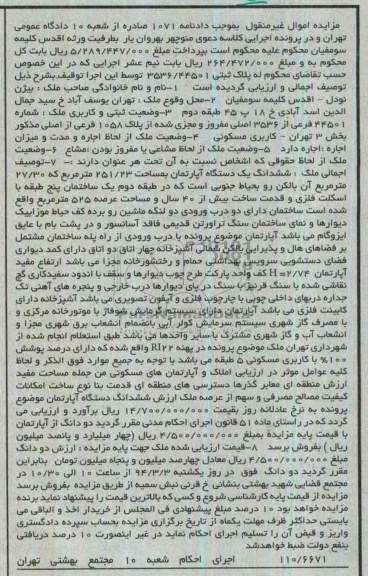 مزایده اموال غیرمنقول بموجب دادنامه ۱۰۷۱ صادره از شعبه ۱۰ دادگاه عمومی
تهران و در پرونده اجرایی کلاسه دعوی منوچهر بهروان یار بطرفیت ورثه اقدس کلیمه
سومفیان محکوم علیه محکوم است بپرداخت مبلغ ۵/۲۸۹/۴۴۷/۰۰۰ ریال بابت کل
محکوم به و مبلغ ۲۶۴/۴۷۲/۰۰۰ ریال بابت نیم عشر اجرایی که در این خصوص
حسب تقاضای محکوم له پلاک ثبتی ۳۵۳۶/۴۴۵۰۱ توسط این اجرا توقیف.بشرح ذیل
توصیف اجمالی و ارزیابی گردیده است ۱-نام و نام خانوادگی صاحب ملک : بیژن
نودل - اقدس کلیمه سومفیان ۲-محل وقوع ملک : تهران یوسف آباد خ سید جمال
الدین اسد آبادی خ ۱۸ پ ۴۵ طبقه دوم ۳-وضعیت ثبتی و کاربری ملک : شماره
۴۴۵۰۱ فرعی از ۳۵۳۶ اصلی مفروز و مجزی شده از پلاک ۱۰۵۸ فرعی از اصلی مذکور
بخش ۳ تهران - کاربری مسکونی ۴-وضعیت ملک از لحاظ اجاره و مدت و میزان
اجاره :اجاره دارد ۵-وضعیت ملک از لحاظ مشاعی یا مفروز بودن :مشاع ۶-وضعیت
ملک از لحاظ حقوقی که اشخاص نسبت به آن تحت هر عنوان دارند :- ۷-توصیف
اجمالی ملک : ششدانگ یک دستگاه آپارتمان بمساحت ۲۵۱/۲۳ مترمربع که ۲۷/۳۰
مترمربع آن بالکن رو بحیاط جنوبی است که در طبقه دوم یک ساختمان پنج طبقه با
اسکلت فلزی و قدمت ساخت بیش از ۴۰ سال و مساحت عرصه ۵۲۵ مترمربع واقع
شده است ساختمان دارای دو درب ورودی دو لنگه ماشین رو برده کف حیاط موزاییک
دیوارها و نمای ساختمان سنگ تراورتن قدیمی فاقد آسانسور و در پشت بام با عایق
ایزوگام می باشد آپارتمان موضوع پرونده با درب ورودی از راه پله ساختمان مشتمل
بر فضاهای هال و پذیرایی بالکن شمالی آشپزخانه چهار اتاق دو اتاق دارای کمد دیواری
فضای دستشویی سرویس بهداشتی حمام و رختشورخانه مجزا می باشد ارتفاع مفید
آپارتمان H=۲/۷۴ کف واحد پارکت طرح چوب دیوارها و سقف با اندود سفیدکاری گچ
نقاشی شده با سنگ قرنیز با سنگ در پای دیوارها درب خارجی و پنجره های آهنی تک
جداره دربهای داخلی چوبی با چارچوب فلزی و آیفون تصویری می باشد آشپزخانه دارای
کابینت فلزی می باشد آپارتمان دارای سیستم گرمایش شوفاژ با موتورخانه مرکزی و
با مصرف گاز شهری سیستم سرمایش کولر آبی بانضمام انشعاب برق شهری مجزا و
انشعاب آب و گاز شهری مشترک با سایر واحدها می باشد طبق استعلام انجام شده از
شهرداری تهران ملک موضوع پرونده در پهنه R۱۲۲ واقع شده که دارای درصد پوشش
۱۰۰% با کاربری مسکونی ۵ طبقه می باشد با توجه به جمیع موارد فوق الذکر و لحاظ
کلیه عوامل موثر در ارزیابی املاک و آپارتمان های مسکونی من جمله مساحت مفید
ارزش منطقه ای معابر گذرها دسترسی های منطقه ای قدمت بنا نوع ساخت امکانات
کیفیت مصالح مصرفی و سهم از عرصه ملک ارزش ششدانگ دستگاه آپارتمان موضوع
پرونده به نرخ عادلانه روز بقیمت ۱۴/۷۰۰/۰۰۰/۰۰۰ ریال برآورد و ارزیابی می
گردد که در راستای ماده ۵۱ قانون اجرای احکام مدنی مقرر گردید دو دانگ از آپارتمان
با قیمت پایه مزایده بمبلغ ۴/۵۰۰/۰۰۰/۰۰۰ ریال (چهار میلیارد و پانصد میلیون
ریال) بفروش برسد ۸-قیمت ارزیابی شده ملک جهت پایه مزایده : ارزش دو دانگ
مبلغ ۴/۵۰۰/۰۰۰/۰۰۰ ریال معادل چهارصد میلیون و پنجاه میلیون تومان بنابراین
مقرر گردید دو دانگ فوق در روز یکشنبه ۹۴/۳/۳ از ساعت ۱۰ الی ۱۰/۳۰ در
مجتمع قضایی شهید بهشتی بنشانی خ قرنی نبش سمیه از طریق مزایده بفروش برسد
مزایده از قیمت پایه کارشناسی شروع و کسی که بالاترین قیمت را پیشنهاد نماید برنده
مزایده خواهد بود ۱۰ درصد مبلغ پیشنهادی فی المجلس از خریدار اخذ و الباقی می
بایستی حداکثر ظرف مهلت یکماه از تاریخ برگزاری مزایده بحساب سپرده دادگستری
واریز و قبض آن را تسلیم اجرای احکام نماید در غیر اینصورت ۱۰ درصد دریافتی
بنفع دولت ضبط خواهدشد
۱۱۰/۶۶۷۱ اجرای احکام شعبه ۱۰ مجتمع بهشتی تهران